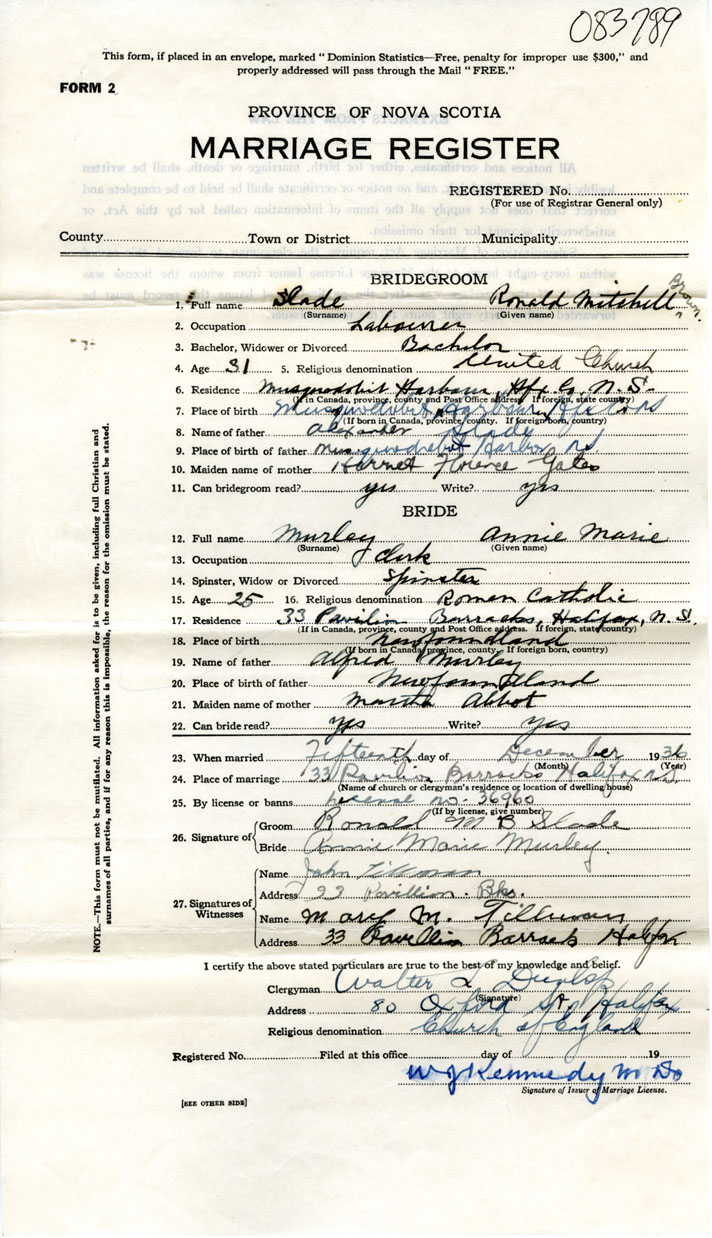 083789
This form, if placed in an envelope, marked "Dominion Statistics—Free, penalty for improper use $300," and
properly addressed will pass through the Mail "FREE."
FORM 2
PROVINCE OF NOVA SCOTIA
MARRIAGE REGISTER
REGISTERED No.
(For use of Registrar General only)
County Town or District Municipality
BRIDEGROOM
1. Full name Slade Ronald Mitchell Brown
(Surname) (Given name)
2. Occupation Labourer
3. Bachelor, Widower or Divorced Bachelor
4. Age 31 5. Religious denomination United Church
6. Residence Musquodobit Harbour, Hfx. Co. N.S.
(If in Canada, province, county and Post Office address. If foreign, state country)
7. Place of birth Musquodobit Harbour, Hfx Co NS
(If born in Canada, province, county. If foreign born, country)
8. Name of father Alexander Slade
9. Place of birth of father Musquodobit Harbor NS
10. Maiden name of mother Harriet Florence Gates
11. Can bridegroom read? yes Write? yes
BRIDE
12. Full name Murley Annie Marie
(Surname) (Given name)
13. Occupation Clerk
14. Spinster, Widow or Divorced Spinster
15. Age 25 16. Religious denomination Roman Catholic
17. Residence 33 Pavilion Barracks, Halifax, N.S.
(If in Canada, province, county and Post Office address. If foreign, state country)
18. Place of birth Newfoundland
(If born in Canada, province, county. If foreign born, country)
19. Name of father Alfred Murley
20. Place of birth of father Newfoundland
21. Maiden name of mother Martha Abbot
22. Can bride read? yes Write? yes
23. When married Fifteenth day of December 1936
(Month) (Year)
24. Place of marriage 33 Pavilion Barracks Halifax NS
(Name of church or clergyman's residence or location of dwelling house)
25. By license or banns License no. 36960
(If by license, give number)
26. Signature of
Groom Ronald M B Slade
Bride Annie Marie Murley.
27. Signatures of Witnesses
Name John Tillman
Address 33 Pavillion Bks.
Name Mary M. Tillman
Address 33 Pavillion Barracks Halifax
I certify the above stated particulars are true to the best of my knowledge and belief.
Clergyman Walter L Dunlop
(Signature)
Address 80 Oxford St, Halifax
Religious denomination Church of England
Registered No. Filed at this office day of 19
W J Kennedy M D
Signature of Issuer of Marriage License.
[SEE OTHER SIDE]
NOTE.—This form must not be mutilated. All information asked for is to be given, including full Christian and
surnames of all parties, and if for any reason this is impossible, the reason for the omission must be stated.